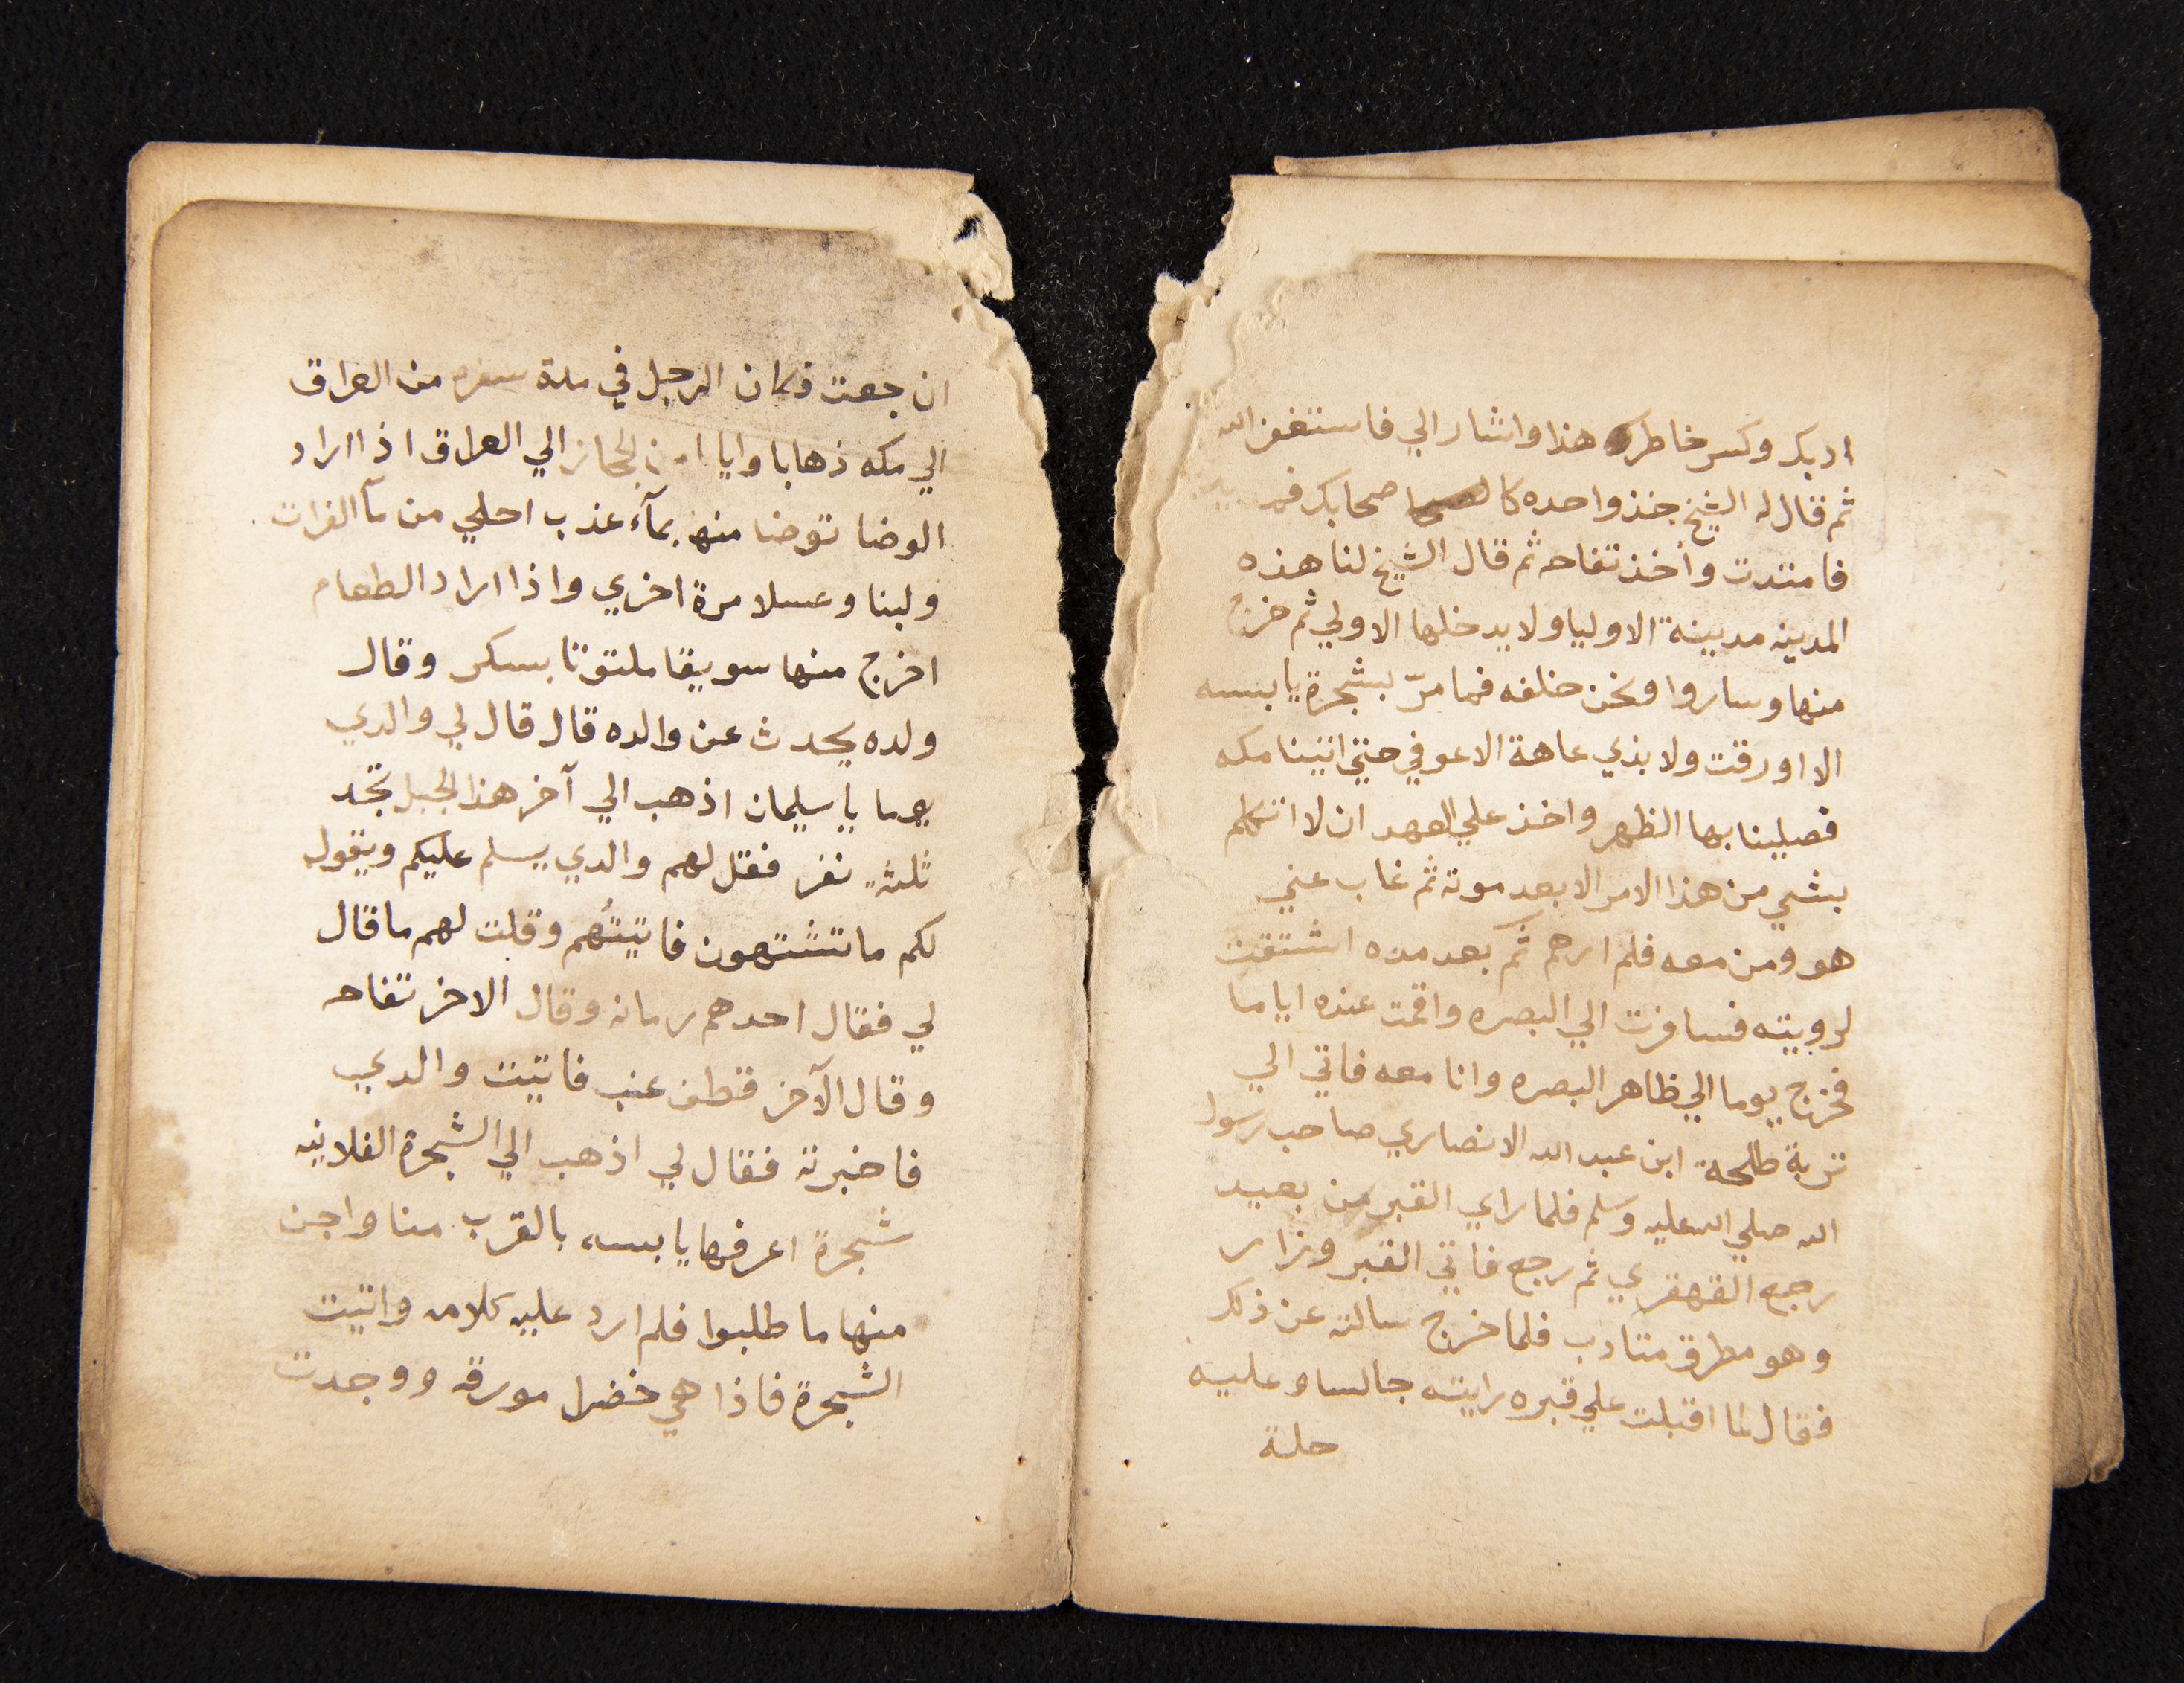 ادبك وكسر خاطرك هذا واشار الي فاستغفر الله
ثم قال له الشيخ خذ واحده كاصحابك فمد يده
فامتدت وأخذ تفاحه ثم قال الشيخ لنا هذه
المدينه مدينة الاوليا ولا يدخلها الا ولي ثم خرج
منها وساروا ونحن خلفه فما مرّ بشجرة يابسه
الا اورقت ولا بذي عاهة الا عوفي حتي اتينا مكه
فصلينا بها الظهر واخذ علي العهد ان لا اتكلم
بشي من هذا الامر الا بعد موته ثم غاب عني
هو ومن معه فلم ارهم ثم بعد مده اشتقت
لرويته فسافرت الي البصره واقمت عنده اياما
فخرج يوما الي ظاهر البصره وانا معه فاتي الي
تربة طلحة ابن عبد الله الانصاري صاحب رسول
الله صلي الله عليه وسلم فلما راي القبر من بعيد
رجع القهقري ثم رجع فاتي القبر وزار
وهو مطرق متادب فلما خرج سالته عن ذلك
فقال لما اقبلت علي قبره رايته جالسا وعليه
حلة
ان جعت فكان الرجل في مدة سفره من العراق
الي مكه ذهابا وايابا من الحجاز الي العراق اذا اراد
الوضا توضا منها بمآء عذب احلي من مآ الفرات
ولبنا وعسلا مرة اخري واذا اراد الطعام
اخرج منها سويقا ملتوتا بسكر وقال
ولده يحدث عن والده قال قال لي والدي
يوما يا سليمان اذهب الي آخر هذا الجبل تجد
ثلثة نفر فقل لهم والدي يسلم عليكم ويقول
لكم ما تشتهون فاتيتُهم وقلت لهم ما قال
لي فقال احدهم رمانه وقال الاخر تفاحه
وقال الآخر قطف عنب فاتيت والدي
فاخبرته فقال لي اذهب الي الشجرة الفلانيه
شجرة اعرفها يابسه بالقرب منا واجن
منها ما طلبوا فلم ارد عليه كلامه واتيت
الشجرة فاذا هي خضرا مورقه ووجدت